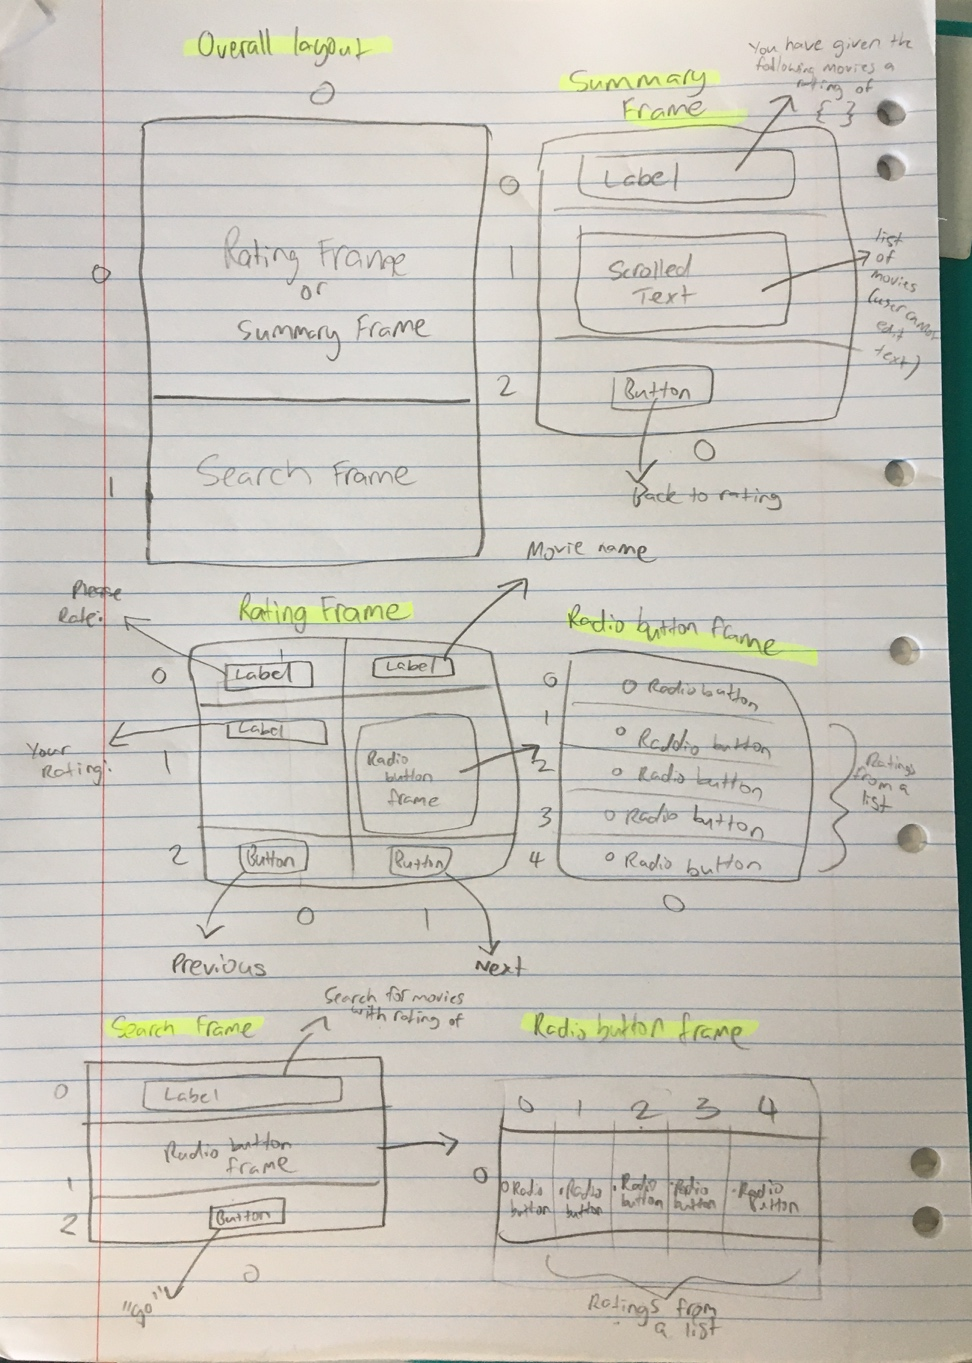 Overall layout
0
0
Rating Frame
or
Summary Frame
1
Search Frame
Summary
Frame
You have given the
following movies a
rating of
{ }
0
Label
1
Scrolled
Text
list
of
movies
(user cannot
edit
text)
2
Button
0
Back to rating
Movie name
Please
Rate:
Rating Frame
0
Label
Label
Your
Rating:
1
Label
Radio
button
frame
2
Button
Button
0
1
Previous
Next
Radio button frame
0
Radio button
1
Raddio button
2
Radio button
3
Radio button
4
Radio button
0
Ratings
from a
list
Search Frame
Search for movies
with rating of
0
Label
1
Radio button
frame
2
Button
0
"Go"
Radio button frame
0 1 2 3 4
0
Radio
button
Radio
button
Radio
button
Radio
button
Radio
button
Ratings from
a list